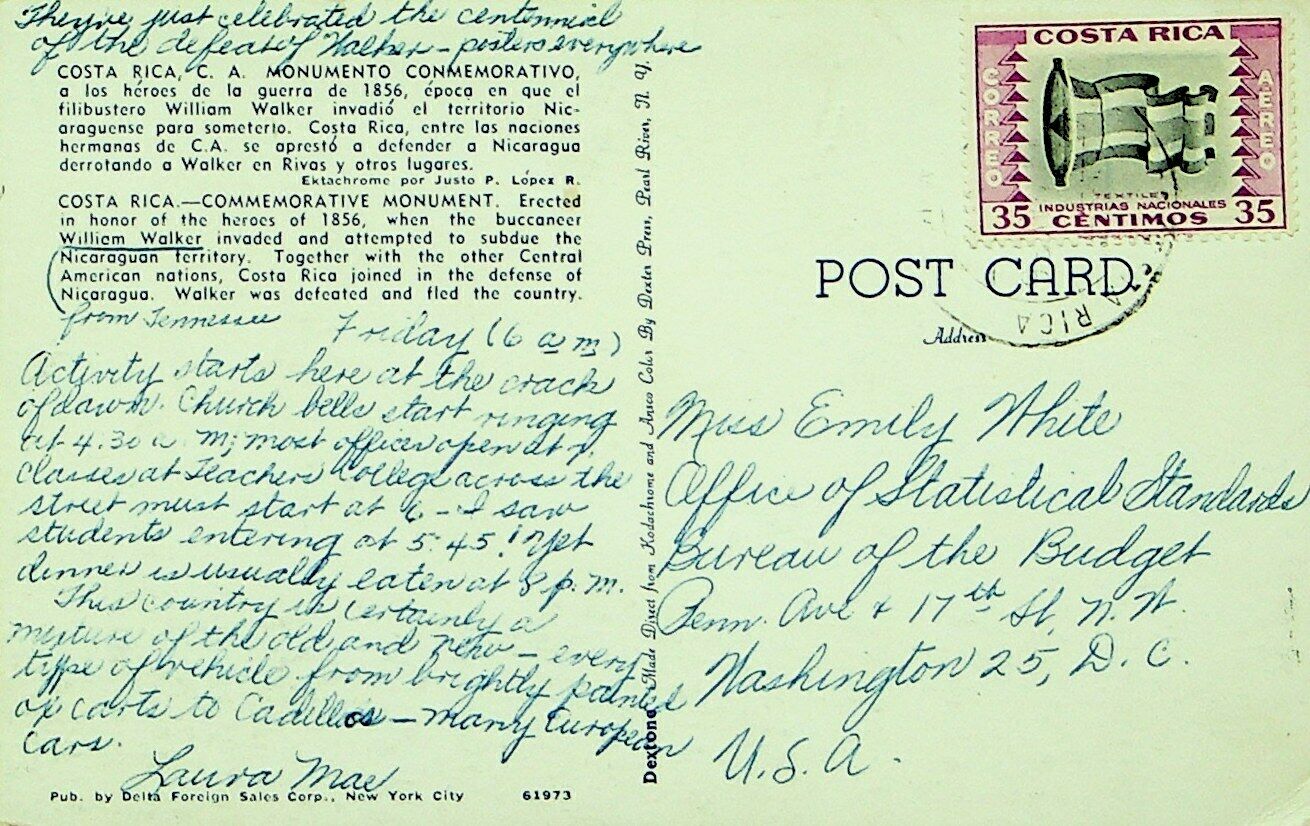 They've just celebrated the centennial
of the defeat of Walker – posters everywhere
COSTA RICA, C. A. MONUMENTO CONMEMORATIVO,
a los héroes de la guerra de 1856, época en que el
filibustero William Walker invadió el territorio Nic-
araguense para someterlo. Costa Rica, entre las naciones
hermanas de C.A. se aprestó a defender a Nicaragua
derrotando a Walker en Rivas y otros lugares.
Ektachrome por Justo P. López R.
COSTA RICA.—COMMEMORATIVE MONUMENT. Erected
in honor of the heroes of 1856, when the buccaneer
William Walker invaded and attempted to subdue the
Nicaraguan territory. Together with the other Central
American nations, Costa Rica joined in the defense of
Nicaragua. Walker was defeated and fled the country.
from Tennessee
Friday (6 a m)
Activity starts here at the crack
of dawn. Church bells start ringing
at 4:30 a. m; most offices open at 7.
Classes at Teachers College across the
street must start at 6 – I saw
students entering at 5:45! Yet
dinner is usually eaten at 8 p. m.
This country is certainly a
mixture of the old and new – every
type of vehicle from brightly painted
ox carts to Cadillacs – many European
cars.
Laura Mae
Pub. by Delta Foreign Sales Corp., New York City 61973
Dextone Made Direct from Kodachrome and Ansco Color By Dexter Press, Pearl River, N. Y.
COSTA RICA
CORREO
AEREO
TEXTILES
INDUSTRIAS NACIONALES
35 CENTIMOS 35
RICA
POST CARD
Address
Miss Emily White
Office of Statistical Standards
Bureau of the Budget
Penn. Ave + 17th St, N.W.
Washington 25, D. C.
U. S. A.